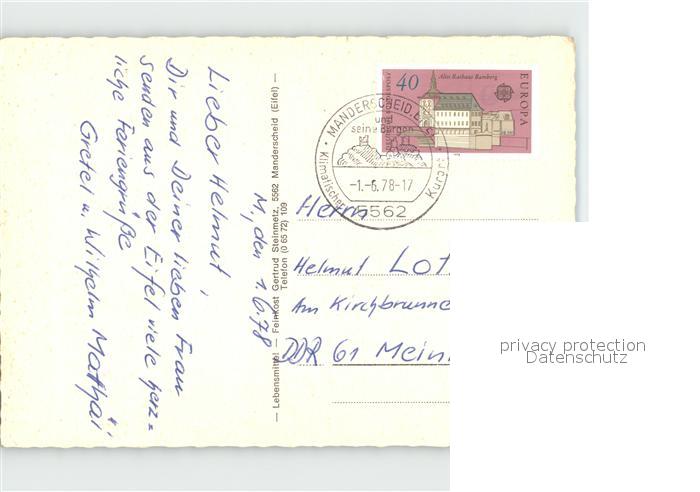 M, den 1.6.78
Lieber Helmut,
Dir und Deiner lieben Frau
senden aus der Eifel viele herz=
liche Feriengrüße
Gretel u. Wilhelm Mathäi
— Lebensmittel — Feinkost Gertrud Steinmetz, 5562 Manderscheid (Eifel) —
Telefon (0 65 72) 109
40
Altes Rathaus Bamberg
EUROPA
DEUTSCHE BUNDESPOST
MANDERSCHEID,
und
seine Burgen
-1.-6.78-17
5562
Klimatischer
Kurort
Herrn
Helmut Lot
Am Kirchbrunne
DDR 61 Mein
privacy protection
Datenschutz